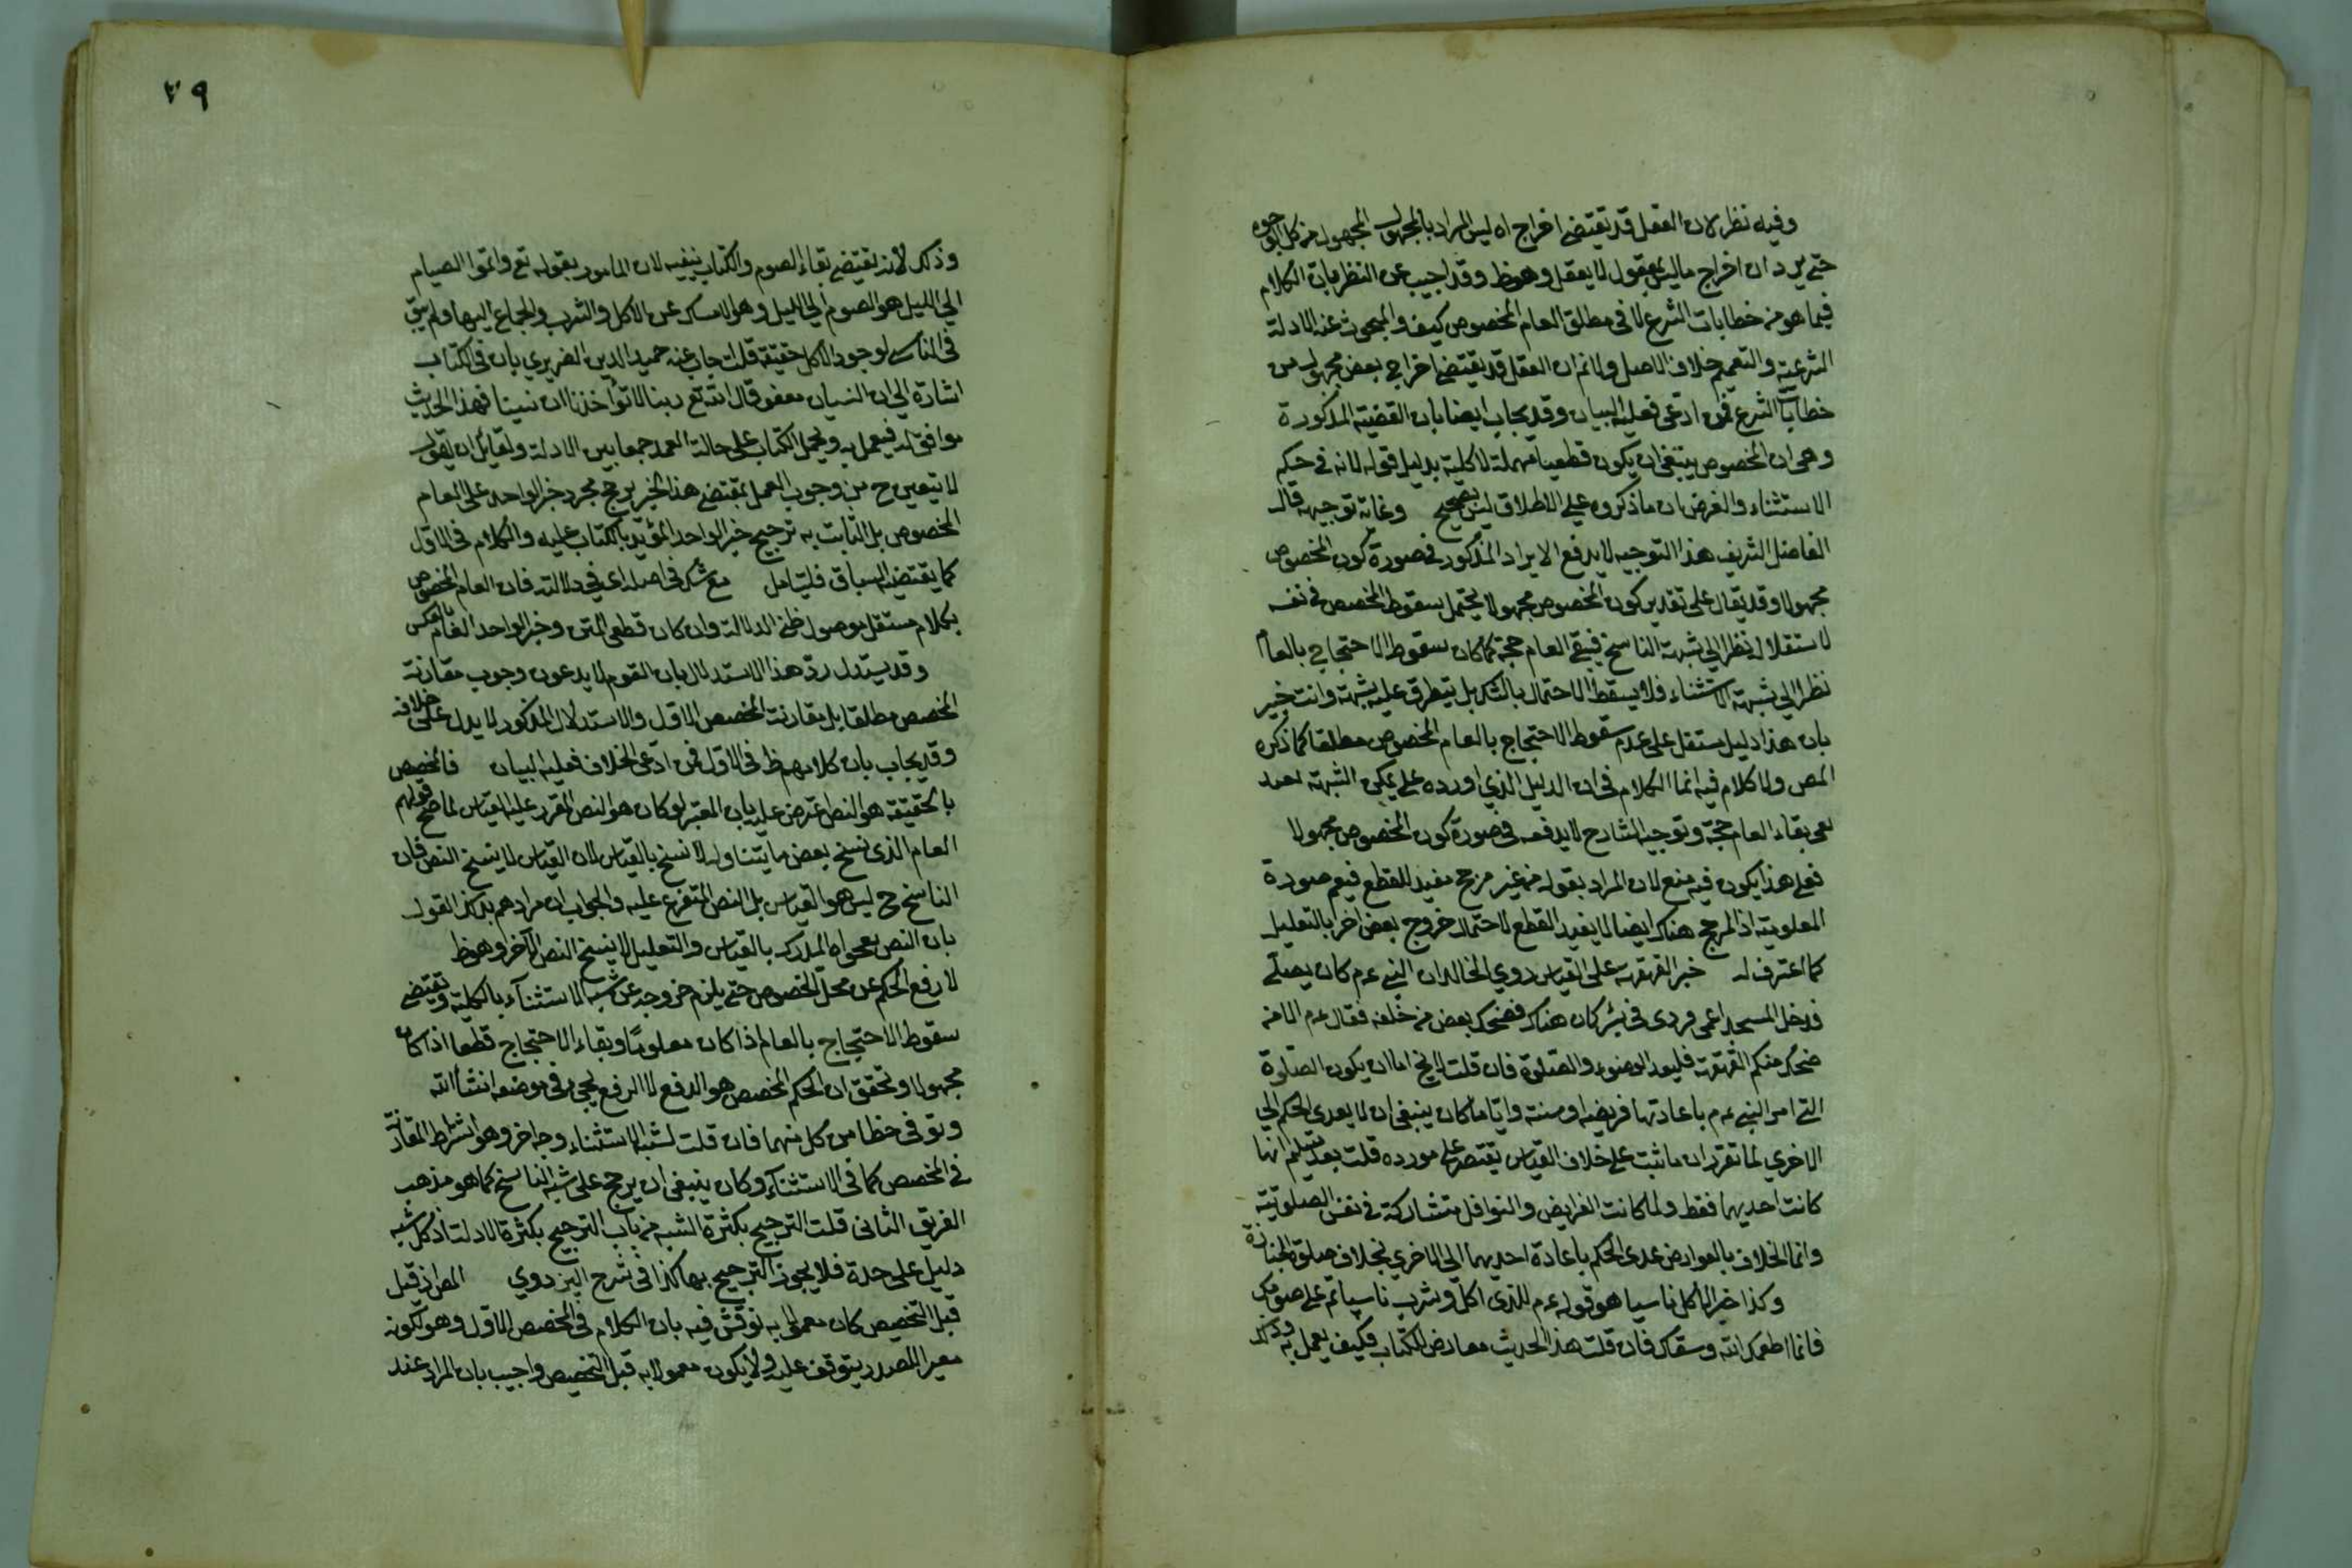 وفيه نظر لان العقل قد يقتضي اخراج اه ليس المراد بالمجهول المجهول من كل الوجوه
حتى يرد ان اخراج ما ليس بمعقول لا يعقل وهو ظ وقد اجيب عن النظر بان الكلام
فيما هو من خطابات الشرع لا في مطلق العام المخصوص كيف والمبحوث عنه الادلة
الشرعية والتعميم خلاف الاصل ولانم ان العقل قد يقتضي اخراج بعض مجهول من
خطابات الشرع فمن ادعى فعليه البيان وقد يجاب ايضا بان القضية المذكورة
وهي ان المخصوص ينبغي ان يكون قطعيا مهملة لا كلية بدليل قوله لانه في حكم
الاستثناء والغرض ان ما ذكروه على الاطلاق ليس بصحيح وغاية توجيهه قال
الفاضل الشريف هذا التوجيه لا يدفع الايراد المذكور في صورة كون المخصوص
مجهولا وقد يقال على تقدير كون المخصوص مجهولا يحتمل سقوط المخصص في نفسه
لاستقلاله نظرا الى شبهة الناسخ فيبقى العام حجة كما كان سقوط الاحتجاج بالعام
نظرا الى شبهة الاستثناء فلا يسقط الاحتمال بالشك بل يتطرق عليه شبهة وانت خبير
بان هذا دليل مستقل على عدم سقوط الاحتجاج بالعام المخصوص مطلقا كما ذكره
المص ولا كلام فيه انما الكلام في ان الدليل الذي اورده على تمكن الشبهة
بقاء العام حجة وتوجيه الشارح لا يدفعه في صورة كون المخصوص مجهولا
فعلى هذا يكون فيه منع لان المراد بقوله من غير مرجح مفيد للقطع فيعم صورة
المعلومية اذ المرجح هناك ايضا لا يفيد القطع لاحتمال خروج بعض اخر بالتعليل
كما اعترف له خبر القهقهة على القياس روي الخالدان النبي عم كان يصلي
فدخل المسجد اعمى فردى في بئر كان هناك فضحك بعض من خلفه فقال عم الا من
ضحك منكم القهقهة فليعد الوضوء والصلوة فان قلت لا يخ اما ان يكون الصلوة
التي امر النبي عم باعادتها فريضة او سنة وايا ما كان ينبغي ان لا يعدى الحكم الى
الاخرى لما تقرر ان ما ثبت على خلاف القياس يقتصر على مورده قلت بعد تسليم انها
كانت احديهما فقط ولما كانت الفرايض والنوافل متشاركة في نفس الصلوتية
وانما الخلاف بالعوارض عدى الحكم باعادة احديهما الى الاخرى بخلاف صلوة الجنازة
وكذا خبر الاكل ناسيا هو قوله عم للذي اكل وشرب ناسيا تم على صومك
فانما اطعمك الله وسقاك فان قلت هذا الحديث معارض للكتاب فكيف يعمل به وذلك
٣٩
وذلك لانه يقتضي بقاء الصوم والكتاب ينفيه لان المامور بقوله تع واتموا الصيام
الى الليل هو الصوم الى الليل وهو الامساك عن الاكل والشرب والجماع اليها ولم يبق
في الناسي لوجود الاكل حقيقة قلت اجاب عنه حميد الدين الضريري بان في الكتاب
اشارة الى ان النسيان معفو قال الله تع ربنا لا تؤاخذنا ان نسينا فهذا الحديث
موافق له فيعمل به ويحمل الكتاب على حالة العمد جمعا بين الادلة ولقايل ان يقول
لا يتعين ح من وجوب العمل بمقتضى هذا الخبر ترجح مجرد خبر الواحد على العام
المخصوص بل الثابت به ترجيح خبر الواحد المؤيد بالكتاب عليه والكلام في الاول
كما يقتضيه السباق فليتامل مع شك في اصله اي في دلالته فان العام المخصوص
بكلام مستقل موصول ظني الدلالة وان كان قطعي المتن وخبر الواحد العام بالعكس
وقد يستدل رد هذا الاستدلال بان القوم لا يدعون وجوب مقارنة
المخصص مطلقا بل مقارنة المخصص الاول والاستدلال المذكور لا يدل على خلافه
وقد يجاب بان كلامهم ظ في الاول فمن ادعى الخلاف فعليه البيان فالمخصص
بالحقيقة هو النص اعترض عليه بان المعتبر لو كان هو النص المقرر عليه القياس لما صح قولهم
العام الذي نسخ بعض ما يتناوله لا نسخ بالقياس لان القياس لا ينسخ النص فان
الناسخ ح ليس هو القياس بل النص المتفرع عليه والجواب ان مرادهم بذلك القول
بان النص بفحواه المدرك بالقياس والتعليل لا ينسخ النص الاخر وهو ظ
لا رفع الحكم عن محل المخصوص حتى يلزم خروجه عن شبه الاستثناء بالكلية ويقتضي
سقوط الاحتجاج بالعام اذا كان معلوما وبقاء الاحتجاج قطعا اذا كان
مجهولا وتحقق ان الحكم المخصص هو الدفع لا الرفع يجيء في موضعه انشا الله
وتوفى حظا من كل منهما فان قلت لشبه الاستثناء وجه اخر وهو اشتراط المقارنة
في المخصص كما في الاستثناء وكان ينبغي ان يرجح على شبه الناسخ كما هو مذهب
الفريق الثاني قلت الترجيح بكثرة الشبه من باب الترجيح بكثرة الادلة اذ كل شبه
دليل على حدة فلا يجوز الترجيح بها كذا في شرح البزدوي المص اذ قبل
قبل التخصيص كان معمولا به نوقش فيه بان الكلام في المخصص الاول وهو لكونه
مغيرا للصدر يتوقف عليه ولا يكون معمولا به قبل التخصيص واجيب بان المراد عند